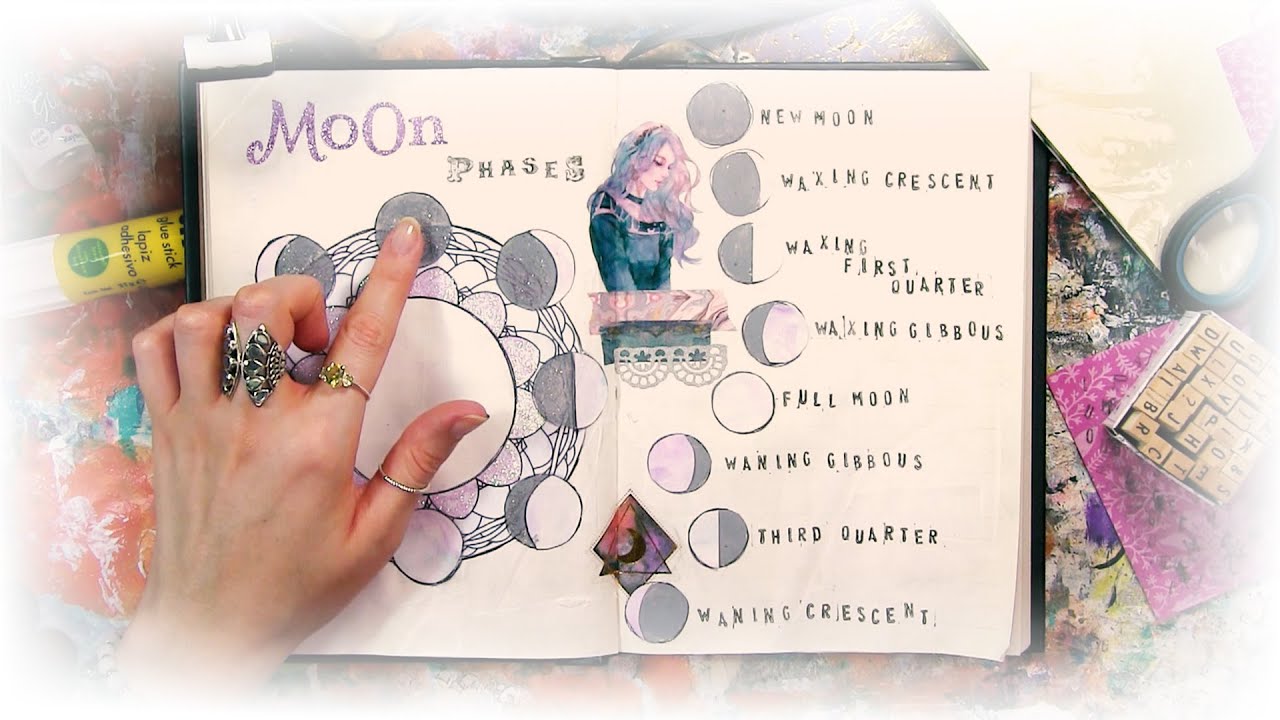 MoOn
PHASES
NEW MOON
WAXING CRESCENT
WAXING
FIRST
QUARTER
WAXING GIBBOUS
FULL MOON
WANING GIBBOUS
THIRD QUARTER
WANING CRESCENT
glue stick
lapiz
adhesivo